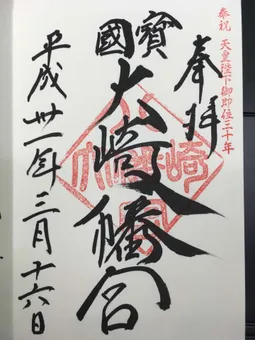 奉祝 天皇陛下御即位三十年
奉拝
國寳
大崎八幡宮
平成丗一年三月十六日